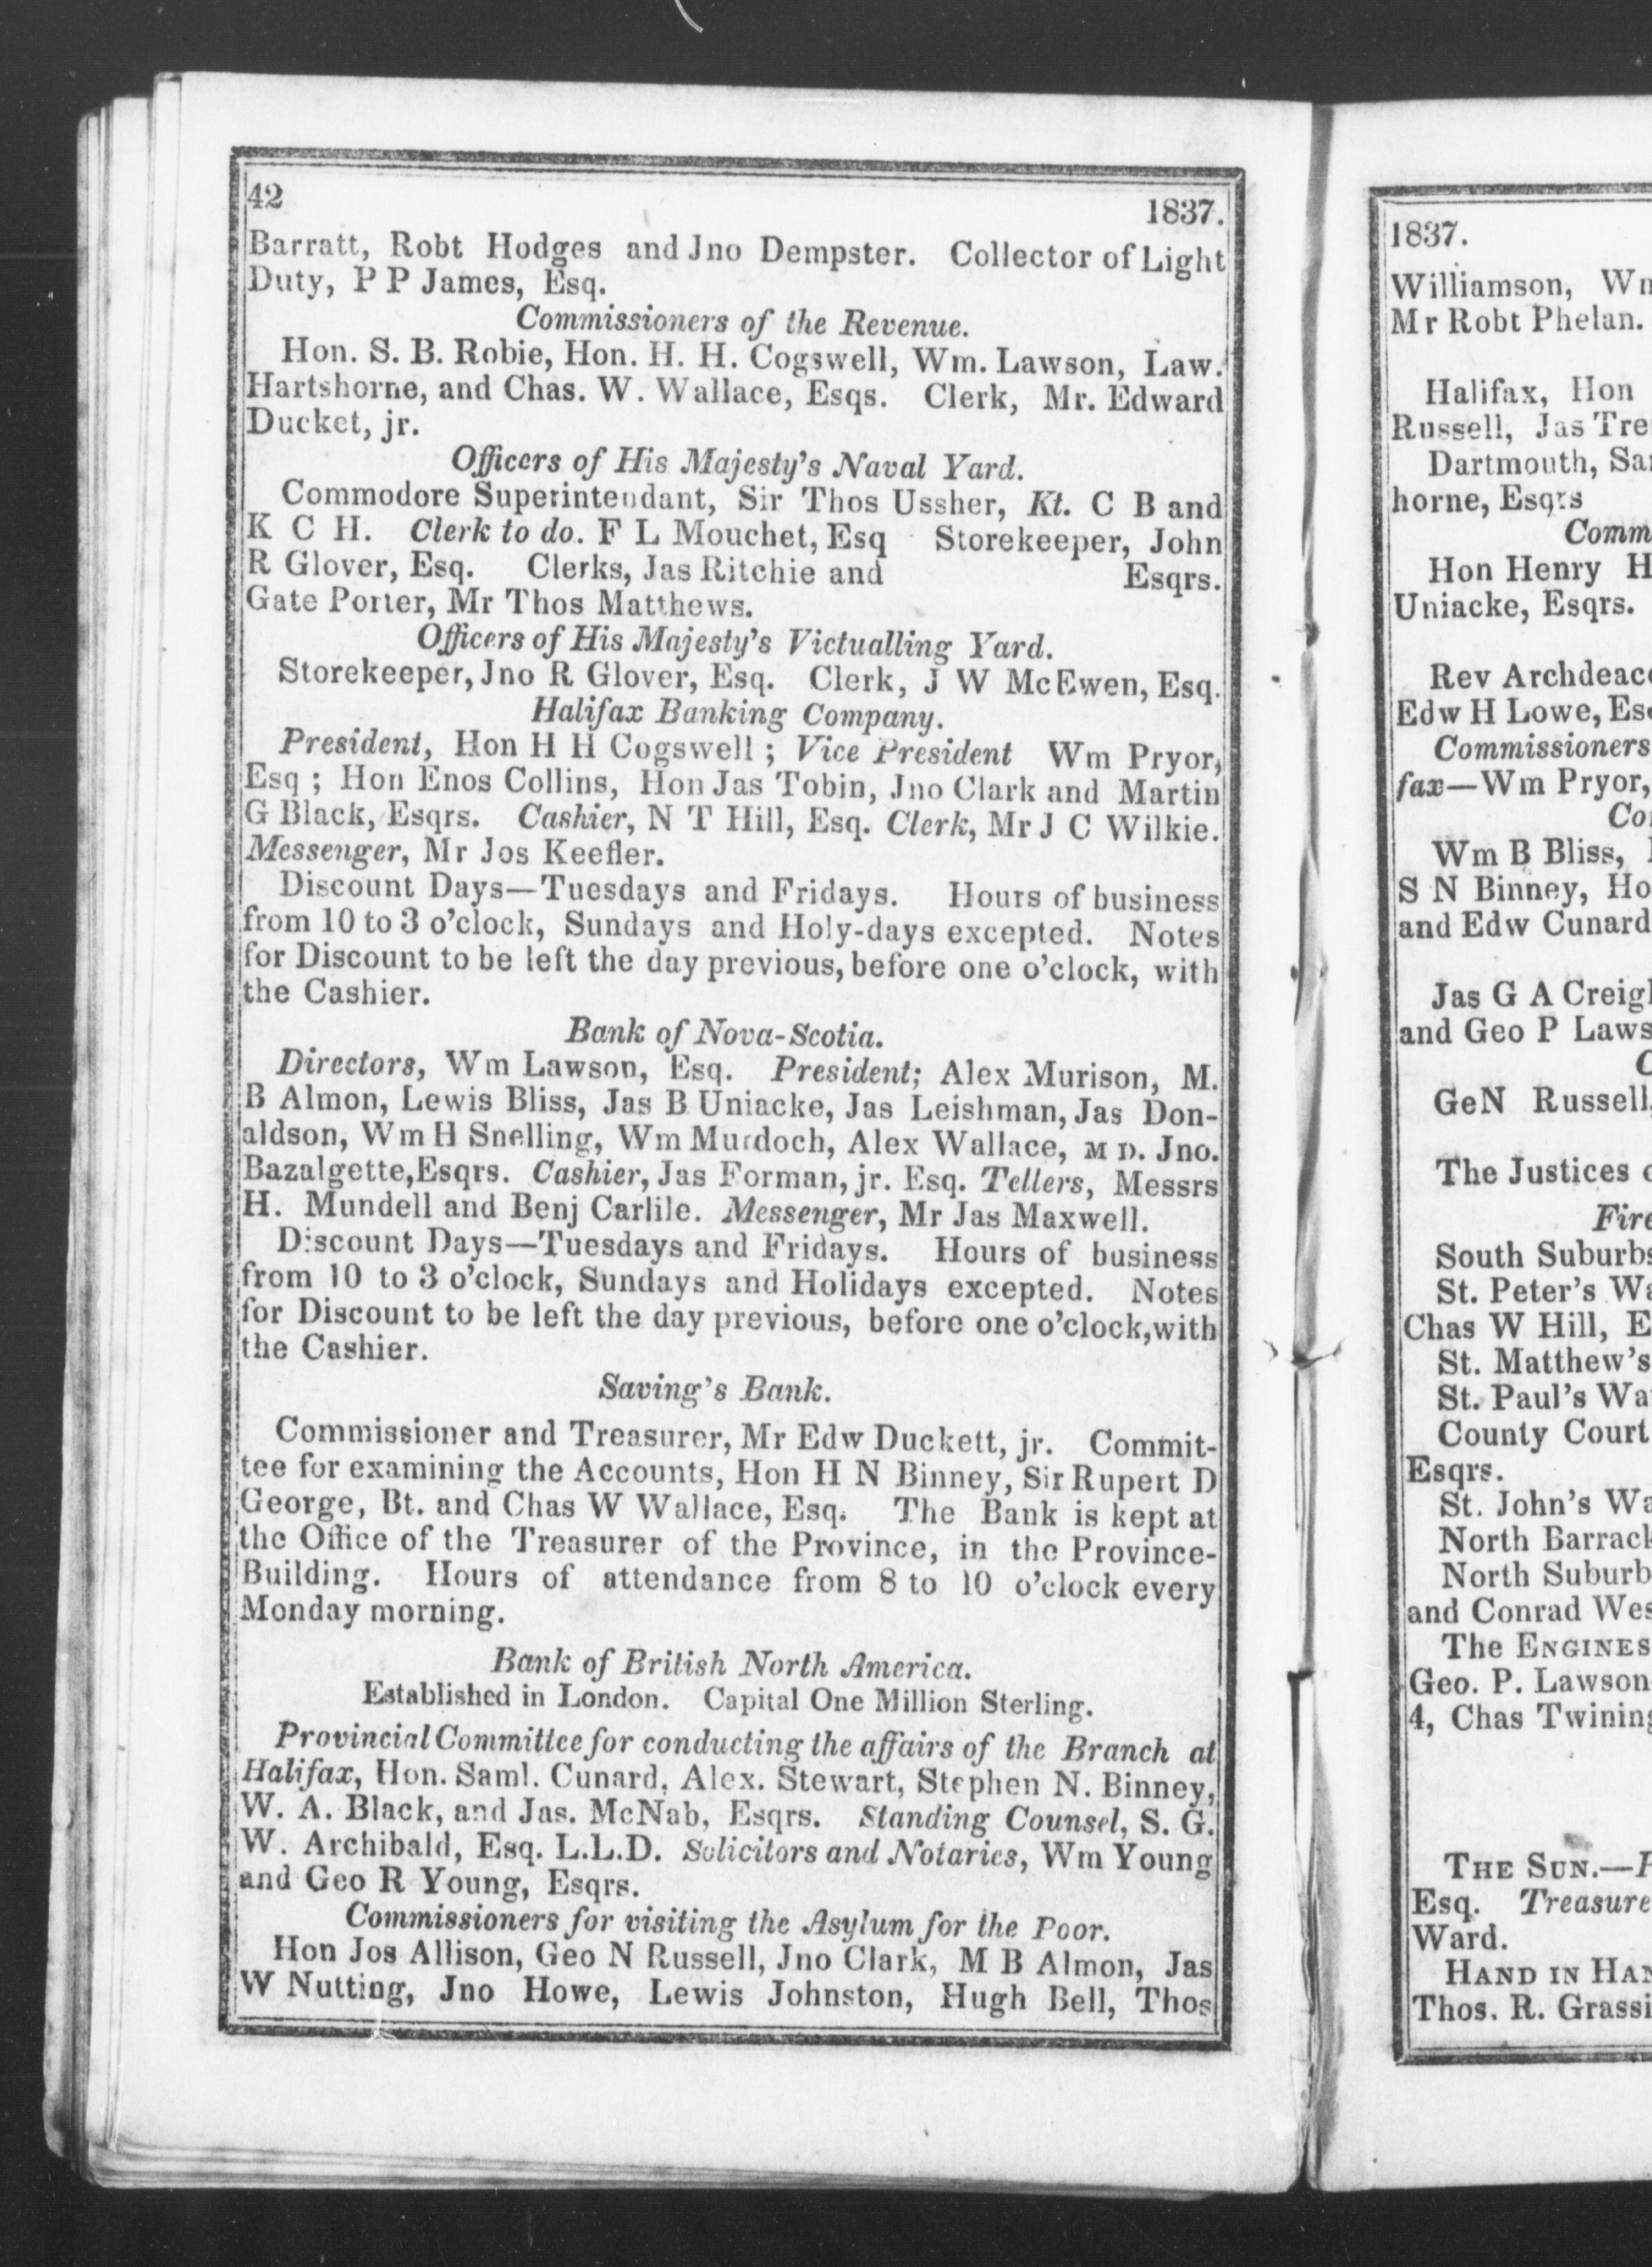 42
1837.
Barratt, Robt Hodges and Jno Dempster. Collector of Light
Duty, P P James, Esq.
Commissioners of the Revenue.
Hon. S. B. Robie, Hon. H. H. Cogswell, Wm. Lawson, Law.
Hartshorne, and Chas. W. Wallace, Esqs. Clerk, Mr. Edward
Ducket, jr.
Officers of His Majesty's Naval Yard.
Commodore Superintendant, Sir Thos Ussher, Kt. C B and
K C H. Clerk to do. F L Mouchet, Esq Storekeeper, John
R Glover, Esq. Clerks, Jas Ritchie and Esqrs.
Gate Porter, Mr Thos Matthews.
Officers of His Majesty's Victualling Yard.
Storekeeper, Jno R Glover, Esq. Clerk, J W McEwen, Esq.
Halifax Banking Company.
President, Hon H H Cogswell ; Vice President Wm Pryor,
Esq ; Hon Enos Collins, Hon Jas Tobin, Jno Clark and Martin
G Black, Esqrs. Cashier, N T Hill, Esq. Clerk, Mr J C Wilkie.
Messenger, Mr Jos Keefler.
Discount Days—Tuesdays and Fridays. Hours of business
from 10 to 3 o'clock, Sundays and Holy-days excepted. Notes
for Discount to be left the day previous, before one o'clock, with
the Cashier.
Bank of Nova-Scotia.
Directors, Wm Lawson, Esq. President; Alex Murison, M.
B Almon, Lewis Bliss, Jas B Uniacke, Jas Leishman, Jas Don-
aldson, Wm H Snelling, Wm Murdoch, Alex Wallace, M D. Jno.
Bazalgette,Esqrs. Cashier, Jas Forman, jr. Esq. Tellers, Messrs
H. Mundell and Benj Carlile. Messenger, Mr Jas Maxwell.
Discount Days—Tuesdays and Fridays. Hours of business
from 10 to 3 o'clock, Sundays and Holidays excepted. Notes
for Discount to be left the day previous, before one o'clock,with
the Cashier.
Saving's Bank.
Commissioner and Treasurer, Mr Edw Duckett, jr. Commit-
tee for examining the Accounts, Hon H N Binney, Sir Rupert D
George, Bt. and Chas W Wallace, Esq. The Bank is kept at
the Office of the Treasurer of the Province, in the Province-
Building. Hours of attendance from 8 to 10 o'clock every
Monday morning.
Bank of British North America.
Established in London. Capital One Million Sterling.
Provincial Committee for conducting the affairs of the Branch at
Halifax, Hon. Saml. Cunard, Alex. Stewart, Stephen N. Binney,
W. A. Black, and Jas. McNab, Esqrs. Standing Counsel, S. G.
W. Archibald, Esq. L.L.D. Solicitors and Notaries, Wm Young
and Geo R Young, Esqrs.
Commissioners for visiting the Asylum for the Poor.
Hon Jos Allison, Geo N Russell, Jno Clark, M B Almon, Jas
W Nutting, Jno Howe, Lewis Johnston, Hugh Bell, Thos
1837.
Williamson,
Mr Robt Phelan.
Halifax, Hon
Russell, Jas
Dartmouth,
horne, Esqrs
Hon Henry
Uniacke, Esqrs.
Rev
Edw H Lowe,
Commissioners
fax—Wm Pryor,
Wm B Bliss,
S N Binney,
and Edw Cunard
Jas G A
and Geo P
GeN Russell,
The Justices
South Suburbs
St. Peter's
Chas W Hill,
St. Matthew's
St. Paul's
County Court
Esqrs.
St. John's
North
North
and Conrad
The ENGINES
Geo. P. Lawson
4, Chas Twining
THE SUN.—
Esq.
Ward.
HAND IN
Thos. R.